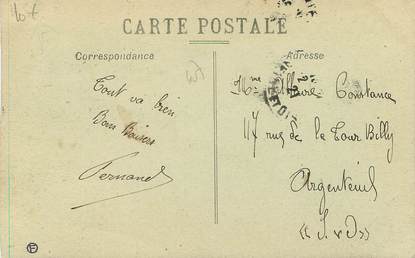 10 f
CARTE POSTALE
Correspondance
Adresse
Tout va bien
Bons Baisers
Fernand
Mme Constance
117 rue de la Tour Billy
Argenteuil
«S. & O»